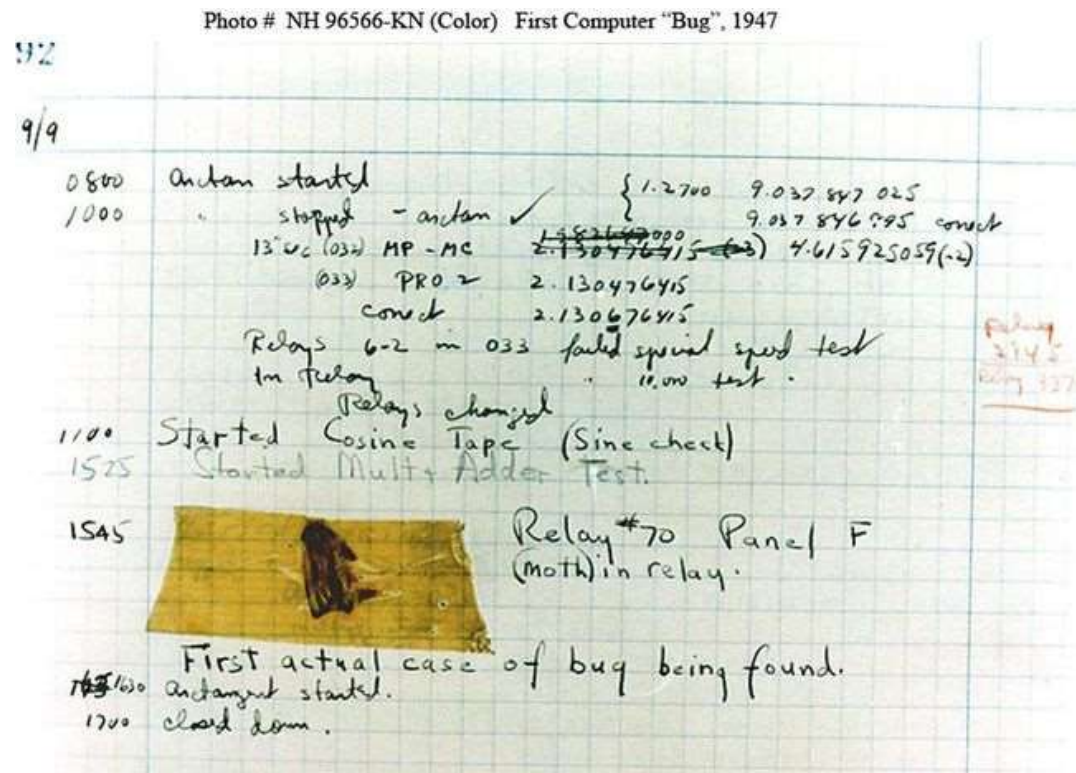 Photo # NH 96566-KN (Color) First Computer “Bug”, 1947
92
9/9
0800 antan started
1000 " stopped - antan ✓ { 1.2700 9.037 847 025
9.037 846 795 conect
13" uc (032) MP - MC 1.982647000 2.130476415 (-3) 4.615925059(-2)
(033) PRO 2 2.130476415
conect 2.130676415
Relays 6-2 in 033 failed special speed test
In relay " 10,000 test .
Relays changed
1100 Started Cosine Tape (Sine check)
1525 Started Mult + Adder Test.
1545 Relay #70 Panel F
(moth) in relay.
First actual case of bug being found.
1630 antangent started.
1700 closed down .
Relay
2145
Relay 337